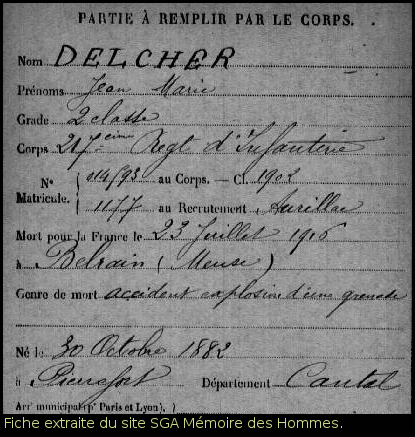 PARTIE À REMPLIR PAR LE CORPS.
Nom DELCHER
Prénoms Jean Marie
Grade 2 classe
Corps Regt d'Infanterie
Nº 11493 au Corps. — Cl. 1902
Matricule. 1177 au Recrutement Aurillac
Mort pour la France le 23 Juillet 1916
à Belrain (Meuse)
Genre de mort accident explosion d'une grenade
Né le 30 Octobre 1882
à Pierrefort Département Cantal
Arrt municipal (pr Paris et Lyon),
Fiche extraite du site SGA Mémoire des Hommes.